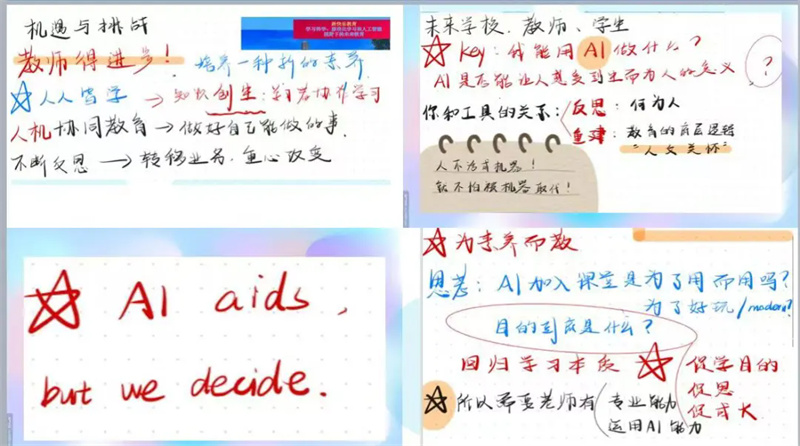 机遇与挑战
教师得进步！ 培养一种新的素养
人人皆学 → 知识创生：学习者协作学习
人机协同教育 → 做好自己能做的事
不断反思 → 转移业务.重心改变
未来学校、教师、学生
Key：我能用AI做什么？
AI是否能让人感受到生而为人的意义 ？
你和工具的关系：
反思：何为人
重建：教育的底层逻辑
"人文关怀"
人不活成机器！
就不怕被机器取代！
AI aids,
but we decide.
为素养而教
思考：AI加入课堂是为了用而用吗？
为了好玩/modern?
目的到底是什么？
回归学习本质
促学目的
促思
促成长
所以需要老师有
专业能力
运用AI能力